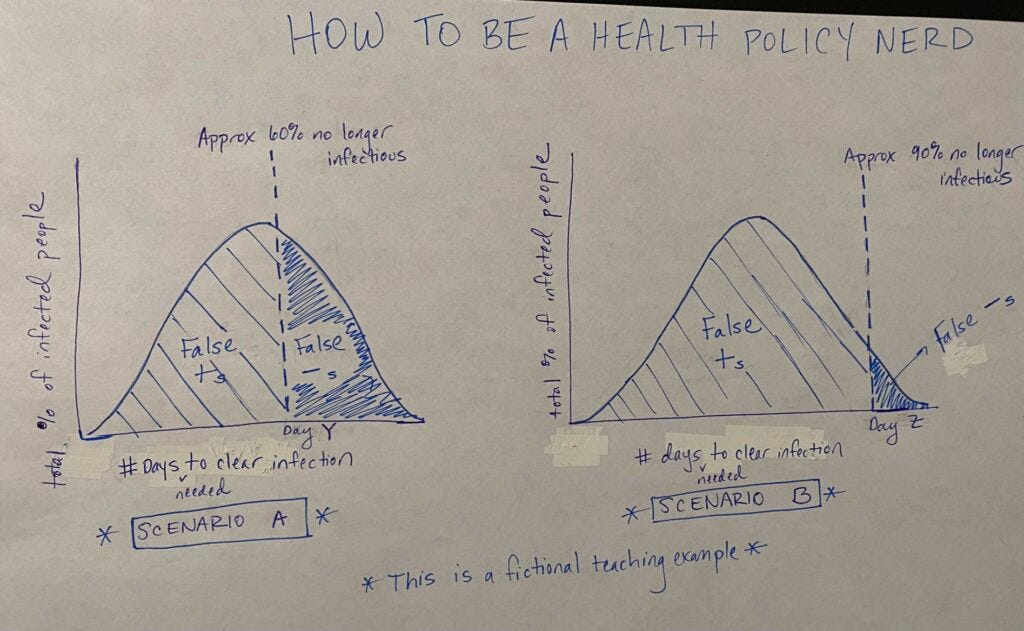 HOW TO BE A HEALTH POLICY NERD
Approx 60% no longer
infectious
total % of infected people
False
+s
False
-s
Day Y
# Days to clear infection
needed
* SCENARIO A *
Approx 90% no longer
infectious
total % of infected people
False
+s
False -s
Day Z
# days to clear infection
needed
* SCENARIO B *
* This is a fictional teaching example *